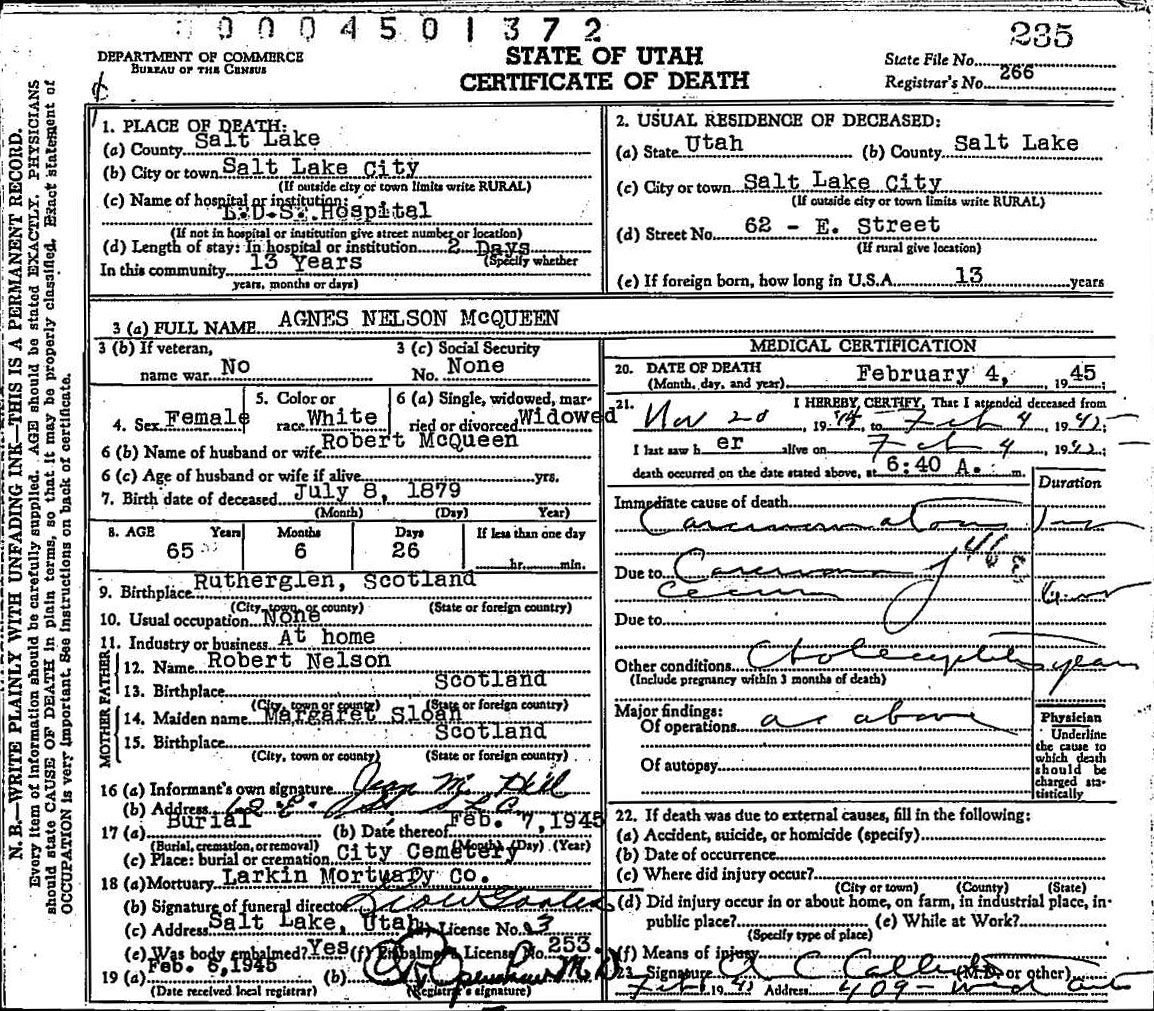 0004501372
235
DEPARTMENT OF COMMERCE
BUREAU OF THE CENSUS
STATE OF UTAH
CERTIFICATE OF DEATH
State File No.
Registrar's No. 266
N. B.—WRITE PLAINLY WITH UNFADING INK—THIS IS A PERMANENT RECORD.
Every item of information should be carefully supplied. AGE should be stated EXACTLY. PHYSICIANS
should state CAUSE OF DEATH in plain terms, so that it may be properly classified. Exact statement of
OCCUPATION is very important. See instructions on back of certificate.
1. PLACE OF DEATH:
(a) County Salt Lake
(b) City or town Salt Lake City
(If outside city or town limits write RURAL)
(c) Name of hospital or institution:
L.D.S. Hospital
(If not in hospital or institution give street number or location)
(d) Length of stay: In hospital or institution 2 Days
(Specify whether
In this community 13 Years
years, months or days)
2. USUAL RESIDENCE OF DECEASED:
(a) State Utah (b) County Salt Lake
(c) City or town Salt Lake City
(If outside city or town limits write RURAL)
(d) Street No. 62 - E. Street
(If rural give location)
(e) If foreign born, how long in U.S.A. 13 years
3 (a) FULL NAME AGNES NELSON McQUEEN
3 (b) If veteran,
name war No
3 (c) Social Security
No. None
4. Sex Female
5. Color or
race White
6 (a) Single, widowed, mar-
ried or divorced Widowed
6 (b) Name of husband or wife Robert McQueen
6 (c) Age of husband or wife if alive yrs.
7. Birth date of deceased July 8, 1879
(Month) (Day) Year)
8. AGE Years Months Days If less than one day
65 6 26
hr. min.
9. Birthplace Rutherglen, Scotland
(City, town, or county) (State or foreign country)
10. Usual occupation None
11. Industry or business At home
FATHER
12. Name Robert Nelson
13. Birthplace Scotland
(City, town or county) (State or foreign country)
MOTHER
14. Maiden name Margaret Sloan
15. Birthplace Scotland
(City, town or county) (State or foreign country)
16 (a) Informant's own signature Jean M. Hill
(b) Address 62 E. St. S.L.C.
17 (a) Burial (b) Date thereof Feb. 7, 1945
(Burial, cremation, or removal) (Month) (Day) (Year)
(c) Place: burial or cremation City Cemetery
18 (a) Mortuary Larkin Mortuary Co.
(b) Signature of funeral director
(c) Address Salt Lake, Utah License No.
(e) Was body embalmed? Yes (f) Embalmer License No. 253
19 (a) Feb. 6, 1945 (b) M.D.
(Date received local registrar) (Registrar's signature)
MEDICAL CERTIFICATION
20. DATE OF DEATH
(Month, day, and year) February 4, 1945;
21. I HEREBY CERTIFY, That I attended deceased from
Nov 20, 1944, to Feb 4 1945;
I last saw her alive on Feb 4, 1945;
death occurred on the date stated above, at 6:40 A. m.
Duration
Immediate cause of death
Due to Carcinoma of
Cecum
Due to
Other conditions years
(Include pregnancy within 3 months of death)
Major findings:
Of operations as above
Of autopsy
Physician
Underline
the cause to
which death
should be
charged sta-
tistically
22. If death was due to external causes, fill in the following:
(a) Accident, suicide, or homicide (specify)
(b) Date of occurrence
(c) Where did injury occur?
(City or town) (County) (State)
(d) Did injury occur in or about home, on farm, in industrial place, in-
public place? (e) While at Work?
(Specify type of place)
(f) Means of injury
23. Signature
(M.D. or other)
Feb 1945 Address 409 - Med Arts